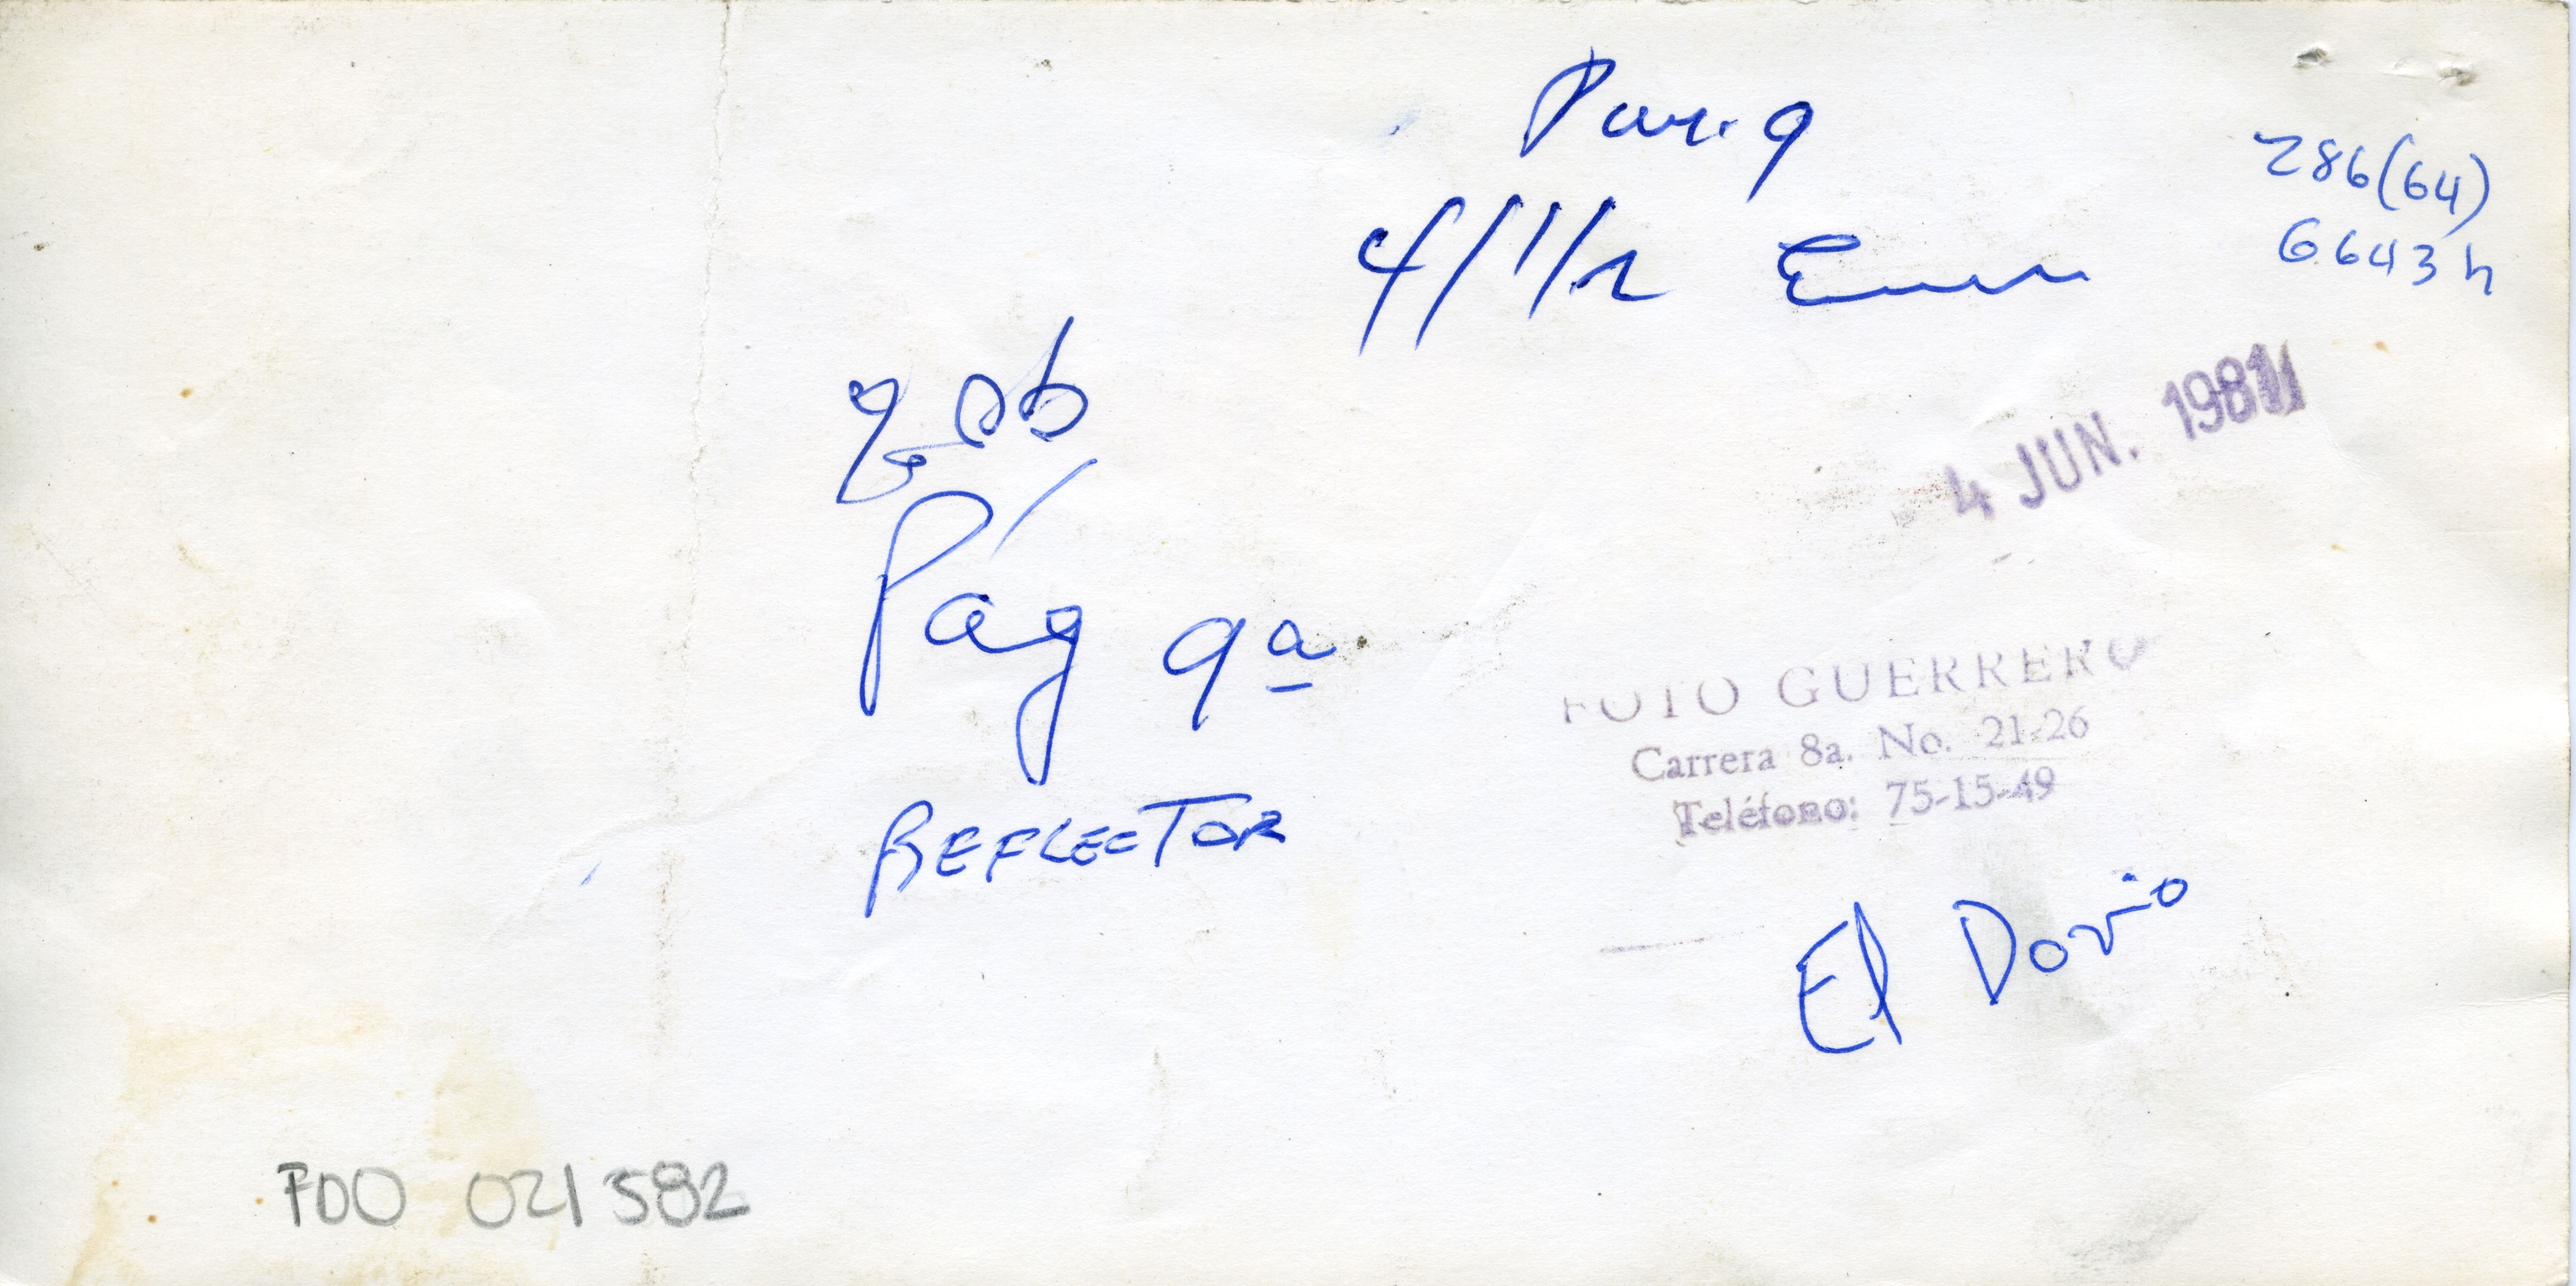 286(64)
6643 h
4 JUN. 1981
Pág 9a
REFLECTOR
FOTO GUERRERO
Carrera 8a. No. 21-26
Teléfono: 75-15-49
El Dovio
FDO 021582